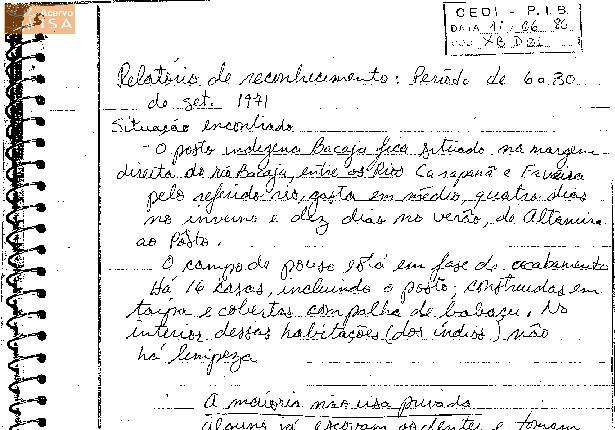 Acervo
ISA
CEDI - P.I.B.
DATA 11/06/86
COD. XB D21
Relatório de reconhecimento: Período de 6 a 30
de set. 1971
Situação encontrada
- O posto indígena Bacajá fica situado na margem
direita do rio Bacajá, entre os Rios Carapanã e Fraveira
pelo referido rio, gasta em médio, quatro dias
no inverno e dez dias no verão, de Altamira
ao Posto.
O campo de pouso está em fase de acabamento
Há 16 casas, incluindo o posto; construidas em
taipa e cobertas com palha de babaçu. No
interior dessas habitações (dos índios) não
há limpeza
A maioria não usa privada
Alguns já escovam os dentes e tomam